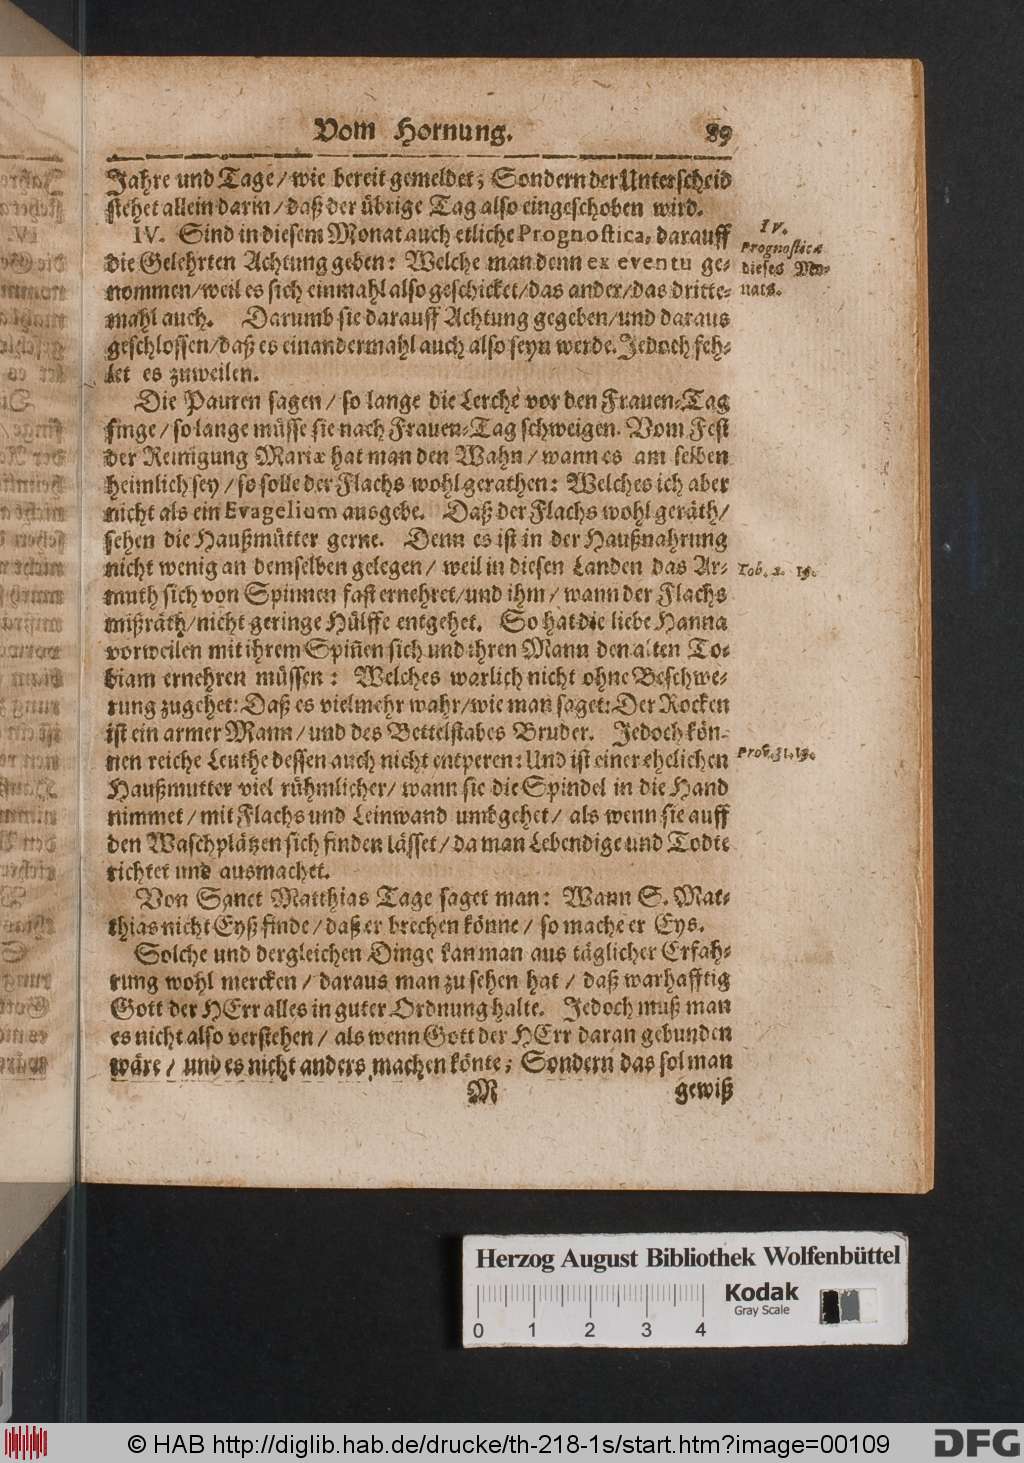 Vom Hornung. 89
Jahre und Tage / wie bereit gemeldet; Sondern der Unterscheid
stehet allein darin / daß der übrige Tag also eingeschoben wird.
IV. Sind in diesem Monat auch etliche Prognostica, darauff
die Gelehrten Achtung geben: Welche man denn ex eventu ge-
nommen / weil es sich einmahl also geschicket / das ander / das dritte-
mahl auch. Darumb sie darauff Achtung gegeben / und daraus
geschlossen / daß es ein andermahl auch also seyn werde. Jedoch feh-
let es zuweilen.
IV.
Prognostica
dieses Mo-
nats.
Die Pauren sagen / so lange die Lerche vor den Frauen-Tag
singe / so lange müsse sie nach Frauen-Tag schweigen. Vom Fest
der Reinigung Mariæ hat man den Wahn / wann es am selben
heimlich sey / so solle der Flachs wohl gerathen: Welches ich aber
nicht als ein Evagelium ausgebe. Daß der Flachs wohl geräth /
sehen die Haußmütter gerne. Denn es ist in der Haußnahrung
nicht wenig an demselben gelegen / weil in diesen Landen das Ar-
muth sich von Spinnen fast ernehret / und ihm / wann der Flachs
mißräth / nicht geringe Hülffe entgehet. So hat die liebe Hanna
vorweilen mit ihrem Spiñen sich und ihren Mann den alten To-
biam ernehren müssen: Welches warlich nicht ohne Beschwe-
rung zugehet: Daß es vielmehr wahr / wie man saget: Der Rocken
ist ein armer Mann / und des Bettelstabes Bruder. Jedoch kön-
nen reiche Leuthe dessen auch nicht entperen: Und ist einer ehelichen
Haußmutter viel rühmlicher / wann sie die Spindel in die Hand
nimmet / mit Flachs und Leinwand umbgehet / als wenn sie auff
den Waschplätzen sich finden lässet / da man Lebendige und Todte
richtet und ausmachet.
Tob. 2. 19.
Prov. 31. 19.
Von Sanct Matthias Tage saget man: Wann S. Mat-
thias nicht Eyß finde / daß er brechen könne / so mache er Eys.
Solche und dergleichen Dinge kan man aus täglicher Erfah-
rung wohl mercken / daraus man zu sehen hat / daß warhafftig
Gott der HErr alles in guter Ordnung halte. Jedoch muß man
es nicht also verstehen / als wenn Gott der HErr daran gebunden
wäre / und es nicht anders machen könte; Sondern das sol man
M gewiß
Herzog August Bibliothek Wolfenbüttel
Kodak
Gray Scale
0 1 2 3 4
© HAB http://diglib.hab.de/drucke/th-218-1s/start.htm?image=00109
DFG